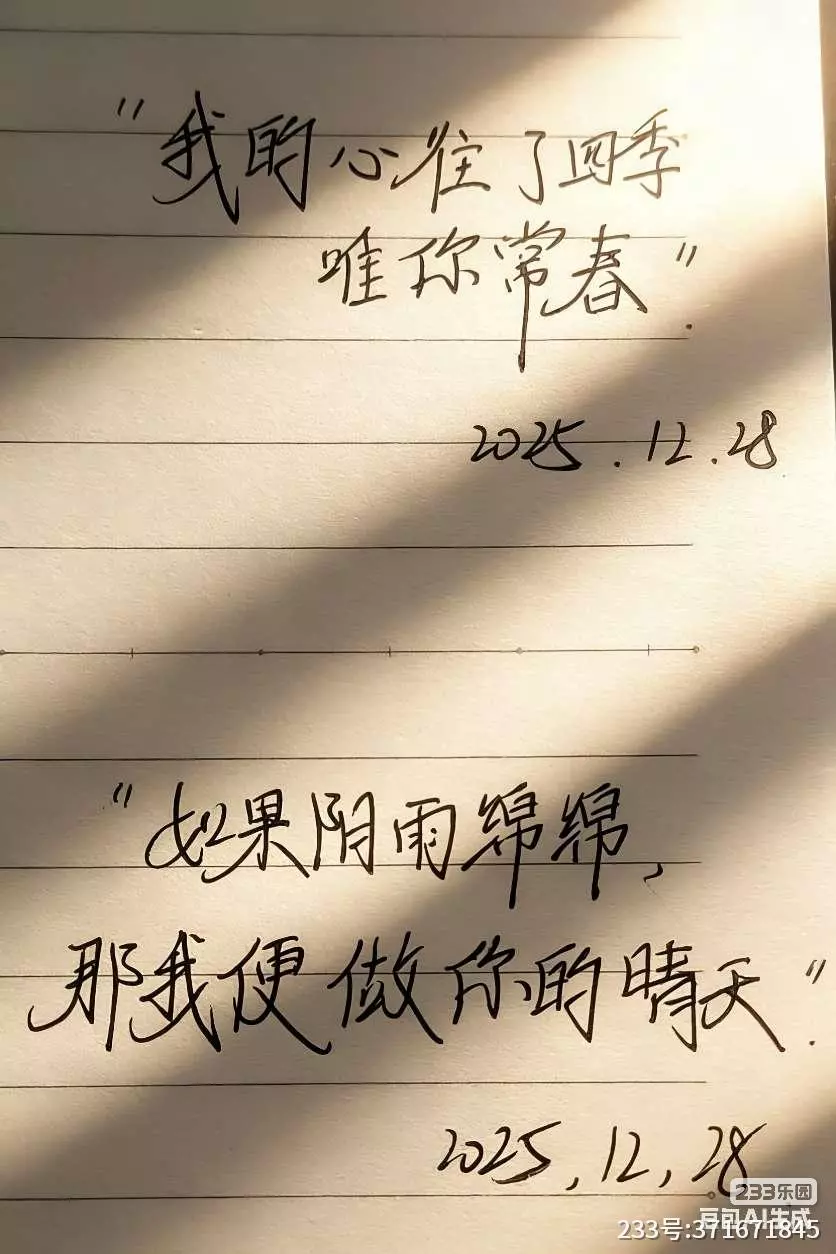 "我的心住了四季
唯你常春".
2025.12.28
"如果阴雨绵绵,
那我便做你的晴天".
2025,12,28
233乐园
豆包AI生成
233号:371671845